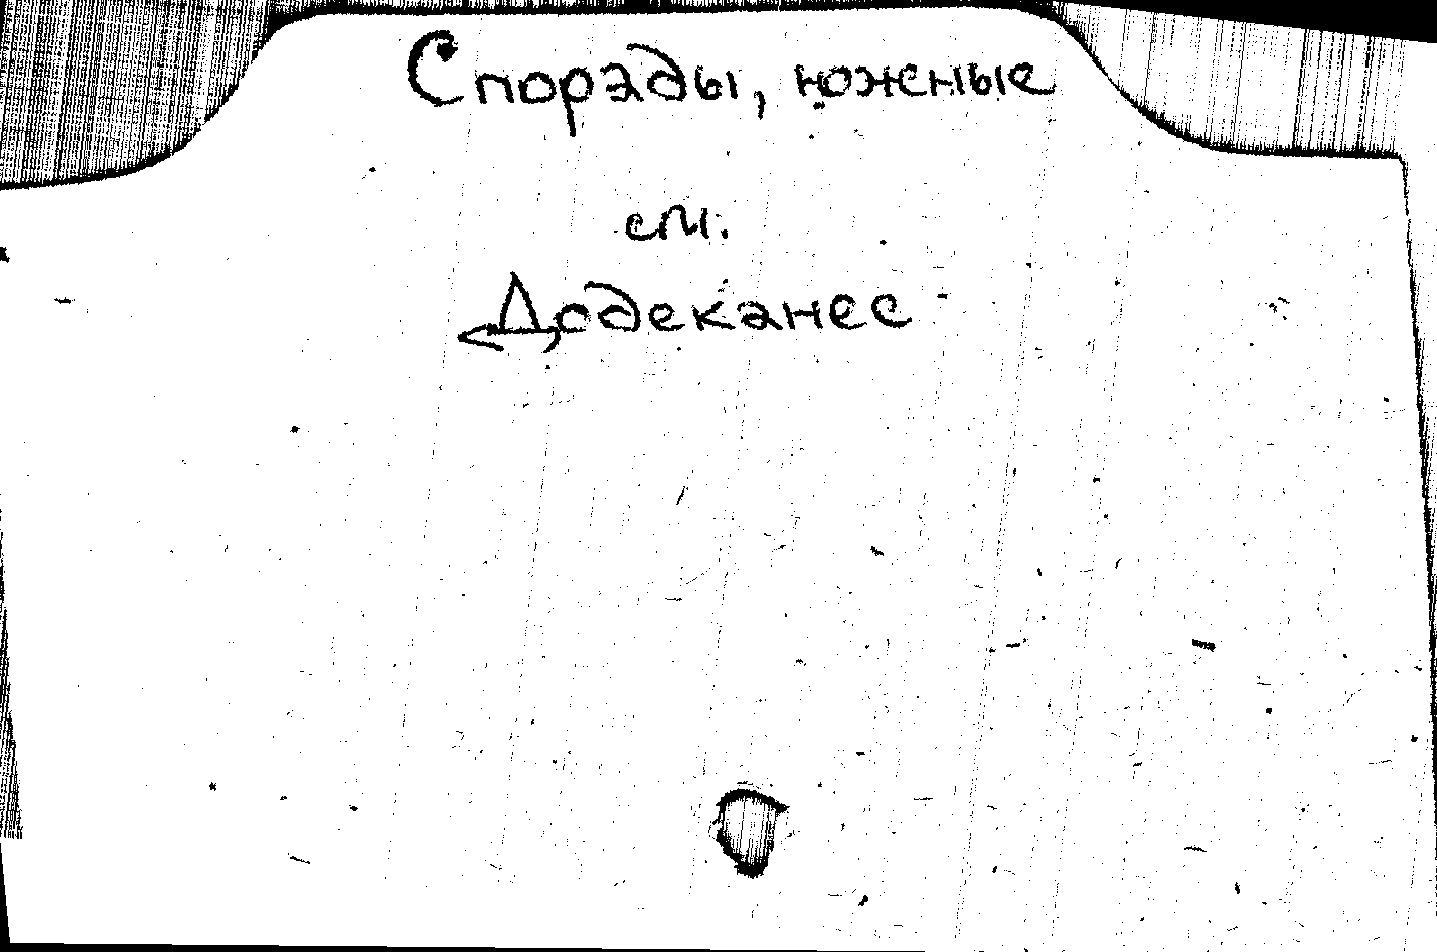 Спорады, южные
см.
Додеканес